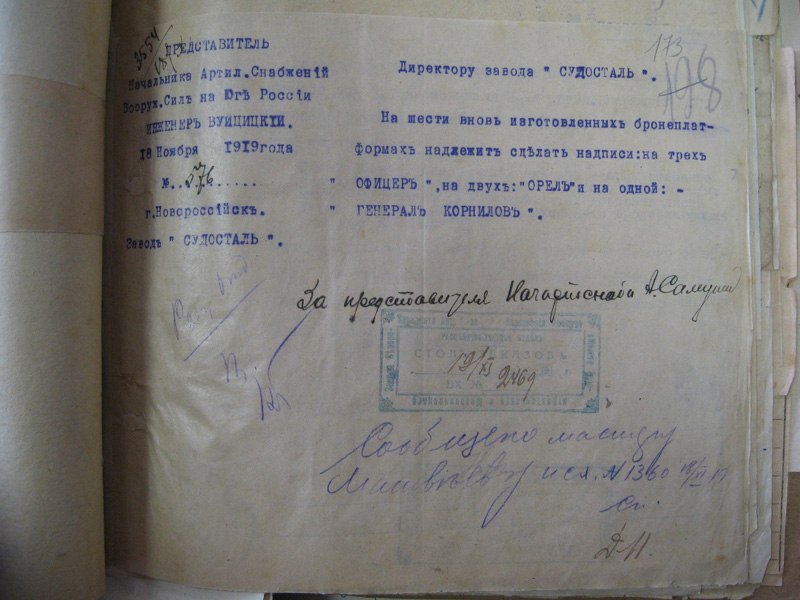 3554
173
198
ПРЕДСТАВИТЕЛЬ
Начальника Артил.Снабженій
Воорух.Силъ на Югѣ Россіи
ИНЖЕНЕРЪ ВУЙЦИЦКІЙ.
18 Ноября 1919года
№..576......
г.Новороссійскъ.
Заводъ " СУДОСТАЛЬ ".
Директору завода " СУДОСТАЛЬ ".
На шести вновь изготовленныхъ бронеплат-
формахъ надлежитъ сдѣлать надписи:на трехъ
" ОФИЦЕРЪ ",на двухъ:"ОРЕЛЪ"и на одной: -
" ГЕНЕРАЛЪ КОРНИЛОВЪ ".
За представителя Начартснаба
СТОЛЪ ЗАКАЗОВЪ
19/XI
ВХ № 2469
Сообщено мастеру
Матвѣеву N 1360 19/XI 19
Д.П.